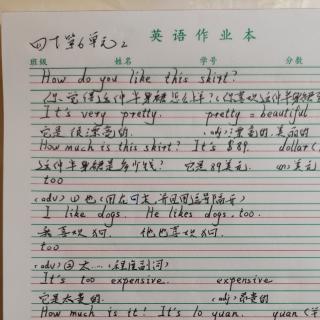 四下第6单元2
英语作业本
班级 姓名 学号 分数
How do you like this skirt?
你觉得这件半身裙怎么样?(你喜欢这件半身裙
It's very pretty. pretty = beautiful
它是很漂亮的. (adj)漂亮的.美丽的
How much is this skirt? It's $89. dollar(
这件半身裙是多少钱? 它是89美元. (n)美元
too
(adv) ① 也
I like dogs. He likes dogs, too.
我喜欢狗. 他也喜欢狗.
too
(adv) ② 太……(程度副词)
It's too expensive. expensive
它是太贵的. (adj)昂贵的
How much is it? It's 10 yuan. yuan(